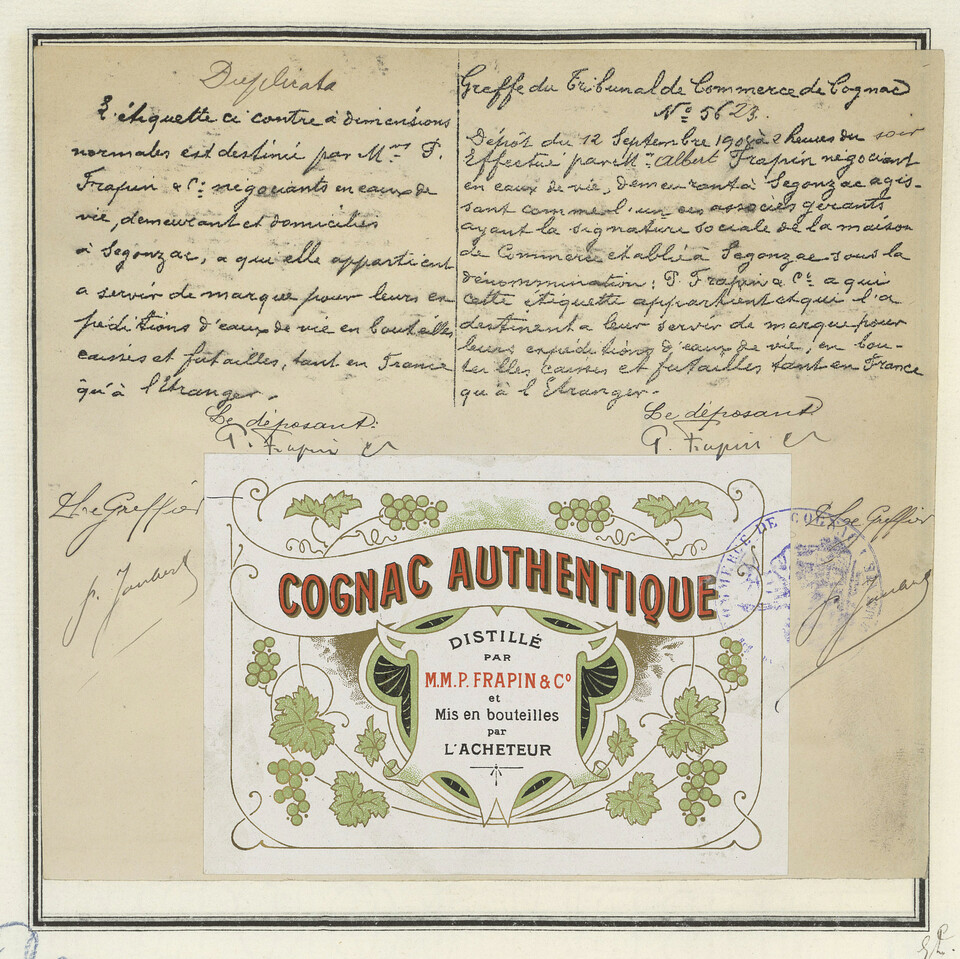 Duplicata
L'étiquette ci contre à dimensions
normales est destiné par Mrs P.
Frapin & Cie négociants en eaux de
vie, demeurant et domiciliés
à Segonzac, a qui elle appartient
a servir de marque pour leurs ex
péditions d'eaux de vie en bouteilles
caisses et futailles, tant en France
qu'à l'Etranger.
Le déposant:
P. Frapin &
Le Greffier
p. Joubert
Greffe du Tribunal de Commerce de Cognac
No 5623.
Dépôt du 12 Septembre à 2 heures du soir
Effectué par Mr Albert Frapin négociant
en eaux de vie, demeurant à Segonzac agis-
sant comme l'un des associés gérants
ayant la signature sociale de la maison
de Commerce établie à Segonzac sous la
dénommination: P. Frapin & Cie a qui
cette étiquette appartient et qui l'a
destinent a leur servir de marque pour
leurs expéditions d'eaux de vie, en bou-
teilles caisses et futailles tant en France
qu'à l'Etranger.
Le déposant
P. Frapin &
Le Greffier
COMMERCE DE COGNAC
COGNAC AUTHENTIQUE
DISTILLÉ
PAR
M.M.P. FRAPIN & Co
et
Mis en bouteilles
par
L'ACHETEUR